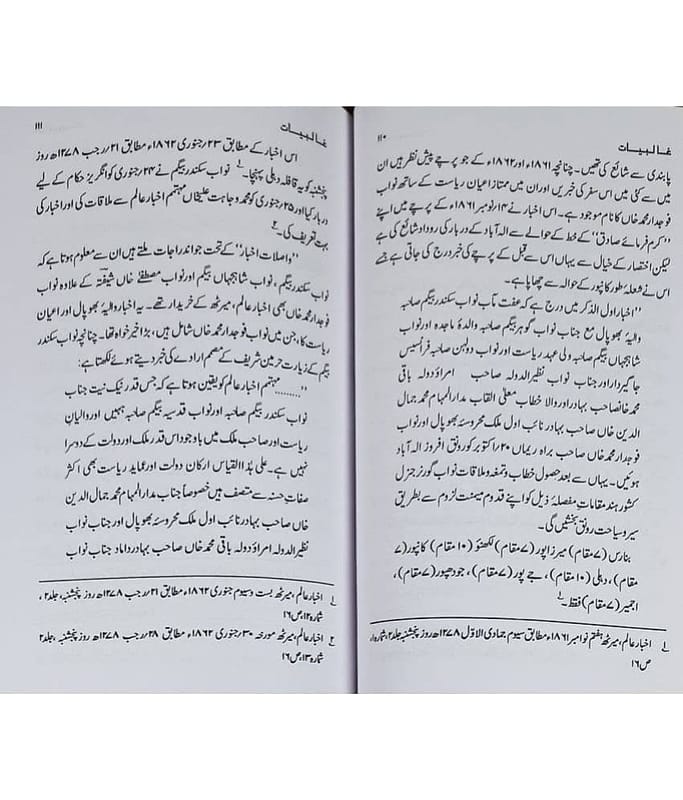 ۱۱۰
غالبیات
پابندی سے شائع کی تھیں۔ چنانچہ ۱۸۶۱ء اور ۱۸۶۲ء کے جو پرچے پیش نظر ہیں ان
میں سے کئی میں اس سفر کی خبریں اور ان میں ممتاز اعیان ریاست کے ساتھ نواب
فوجدار محمد خاں کا نام موجود ہے۔ اس اخبار نے ۱۴ نومبر ۱۸۶۱ء کے پرچے میں اپنے
”کرم فرمائے صادق“ کے خط کے حوالے سے الہ آباد کے دربار کی روداد شائع کی ہے
لیکن اختصار کے خیال سے یہاں اس سے قبل کے پرچے کی خبر درج کی جاتی ہے جسے
اس نے شعلۂ طور کانپور کے حوالہ سے چھاپا ہے۔
”اخبار اول الذکر میں درج ہے کہ عفت مآب نواب سکندر بیگم صاحبہ
والیۂ بھوپال مع جناب نواب گوہر بیگم صاحبہ والدۂ ماجدہ و نواب
شاہجہاں بیگم صاحبہ ولی عہد ریاست اور نواب دولہن صاحبہ فرانسیس
جاگیردار اور جناب نواب نظیر الدولہ صاحب امراؤ دولہ باقی
محمد خانصاحب بہادر اور والا خطاب معلیٰ القاب مدار المہام محمد جمال
الدین خاں صاحب بہادر نائب اول ملک محروسۂ بھوپال اور نواب
فوجدار محمد خاں صاحب براہ ریماں ۲۰ اکتوبر کو رونق افروز الہ آباد
ہوئیں۔ یہاں سے بعد حصول خطاب و تمغہ و ملاقات نواب گورنر جنرل
کشور ہند مقامات مفصلۂ ذیل کو اپنے قدوم میمنت لزوم سے بطریق
سیر و سیاحت رونق بخشیں گی۔
بنارس (۷ مقام) میرزاپور (۷ مقام) لکھنؤ (۱۰ مقام) کانپور (۷
مقام)، دہلی (۱۰ مقام)، جے پور (۷ مقام)، جودھپور (۷ مقام)،
اجمیر (۷ مقام) فقط۔ ۱
۱ اخبار عالم، میرٹھ ہفتم نوامبر ۱۸۶۱ء مطابق سیوم جمادی الاوّل ۱۲۷۸ھ روز پنجشنبہ جلد ۲، شمارہ ۱،
ص ۱۶
۱۱۱
غالبیات
اس اخبار کے مطابق ۲۳؍ جنوری ۱۸۶۲ء مطابق ۲۱؍ رجب ۱۲۷۸ھ روز
پنجشنبہ کو یہ قافلہ دہلی پہنچا۔ ۱ نواب سکندر بیگم نے ۲۴ جنوری کو انگریز حکام کے لیے
دربار کیا اور ۲۵ جنوری کو محمد وجاہت علیخاں مہتمم اخبار عالم سے ملاقات کی اور اخبار کی
بہت تعریف کی۔ ۲
”واصلات اخبار“ کے تحت جو اندراجات ملتے ہیں ان سے معلوم ہوتا ہے کہ
نواب سکندر بیگم، نواب شاہجہاں بیگم اور نواب مصطفیٰ خاں شیفتہ کے علاوہ نواب
فوجدار محمد خاں بھی اخبار عالم، میرٹھ کے خریدار تھے۔ یہ اخبار والیۂ بھوپال اور اعیان
ریاست کا، جن میں نواب فوجدار محمد خاں شامل ہیں، بڑا خیر خواہ تھا۔ چنانچہ نواب سکندر
بیگم کے زیارت حرمین شریف کے مصمم ارادے کی خبر دیتے ہوئے لکھتا ہے:
”........ مہتمم اخبار عالم کو یقین ہوتا ہے کہ جس قدر نیک نیت جناب
نواب سکندر بیگم صاحبہ اور نواب قدسیہ بیگم صاحبہ ہیں اور والیان
ریاست اور صاحب ملک میں باوجود اس قدر ملک اور دولت کے دوسرا
نہیں ہے۔ علیٰ ہذا القیاس ارکان دولت اور عماید ریاست بھی اکثر
صفات حسنہ سے متصف ہیں خصوصاً جناب مدار المہام محمد جمال الدین
خاں صاحب بہادر نائب اول ملک محروسۂ بھوپال اور جناب نواب
نظیر الدولہ امراؤ دولہ باقی محمد خاں صاحب بہادر داماد جناب نواب
۱ اخبار عالم، میرٹھ بست و سیوم جنوری ۱۸۶۲ء مطابق ۲۱؍ رجب ۱۲۷۸ھ روز پنجشنبہ، جلد ۲،
شمارہ ۱۲، ص ۱۶
۲ اخبار عالم، میرٹھ مورخہ ۳۰؍ جنوری ۱۸۶۲ء مطابق ۲۸؍ رجب ۱۲۷۸ھ روز پنجشنبہ، جلد ۲
شمارہ ۱۳، ص ۱۶